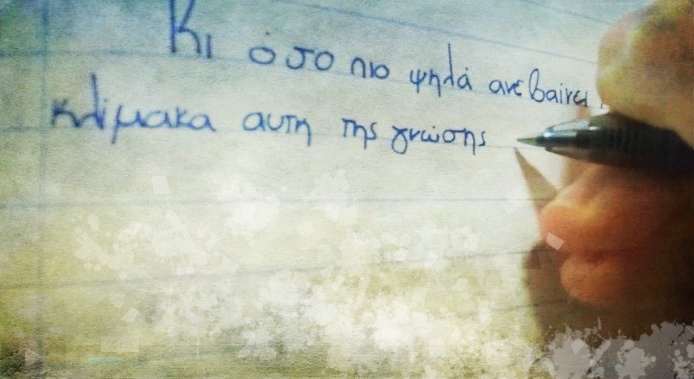 Κι όσο πιο ψηλά ανεβαίνει
κλίμακα αυτη της γνώσης